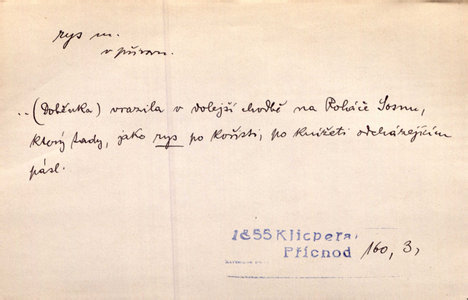 rys m.
v přirovn.
.. (Doběnka) vrazila v dolejší chodbě na Roháče Sosnu,
který tady, jako rys po kořisti, po knížeti odcházejícím
pásl.
1855 Klicpera,
Příchod 160, 3,